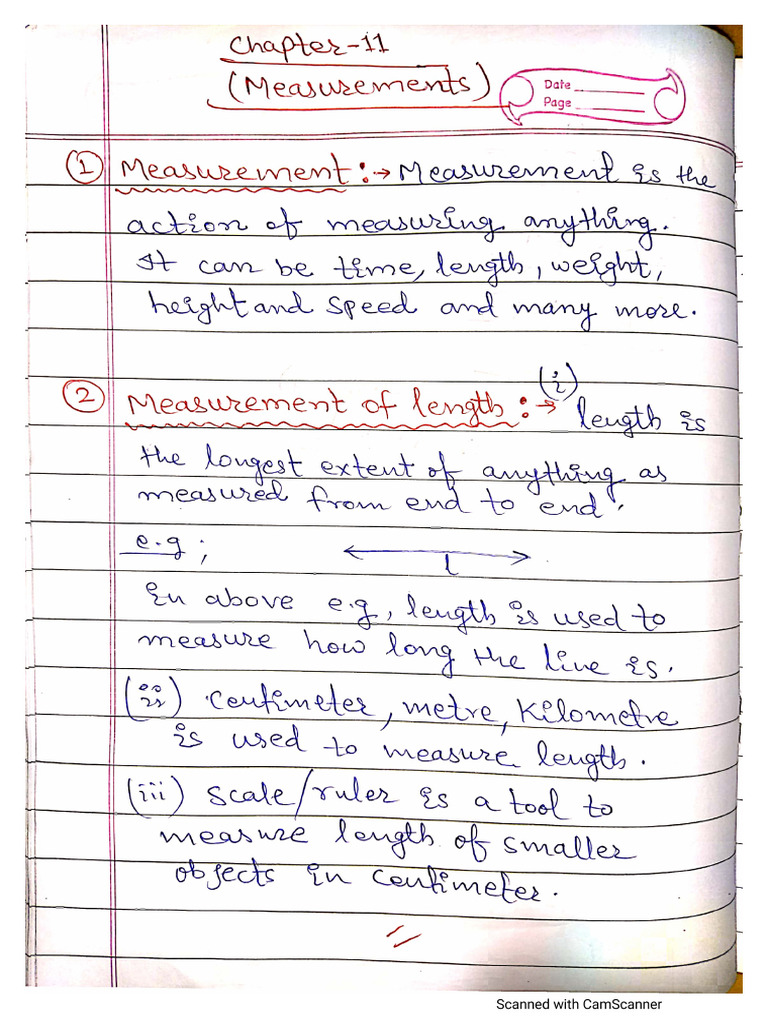 Chapter-11
(Measurements)
Date
Page
① Measurement :→ Measurement is the
action of measuring anything.
It can be time, length, weight,
height and speed and many more.
② Measurement of length :→ (i) length is
the longest extent of anything as
measured from end to end.
e.g ;
l
in above e.g, length is used to
measure how long the line is.
(ii) Centimeter, metre, kilometre
is used to measure length.
(iii) scale/ruler is a tool to
measure length of smaller
objects in centimeter.
Scanned with CamScanner